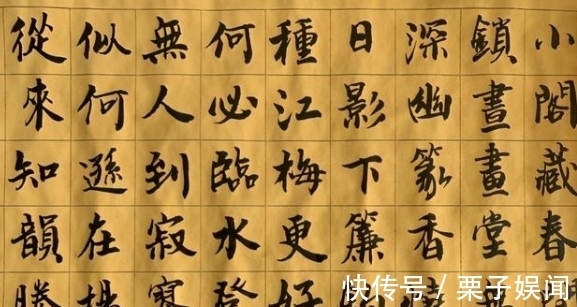 小閣藏春
鎖晝畫堂
深幽篆香
日影下簾
種江梅更好
何必臨水登
無人到寂寥
似何遜在揚
從來知韻勝
快传号 / 栗子娱闻